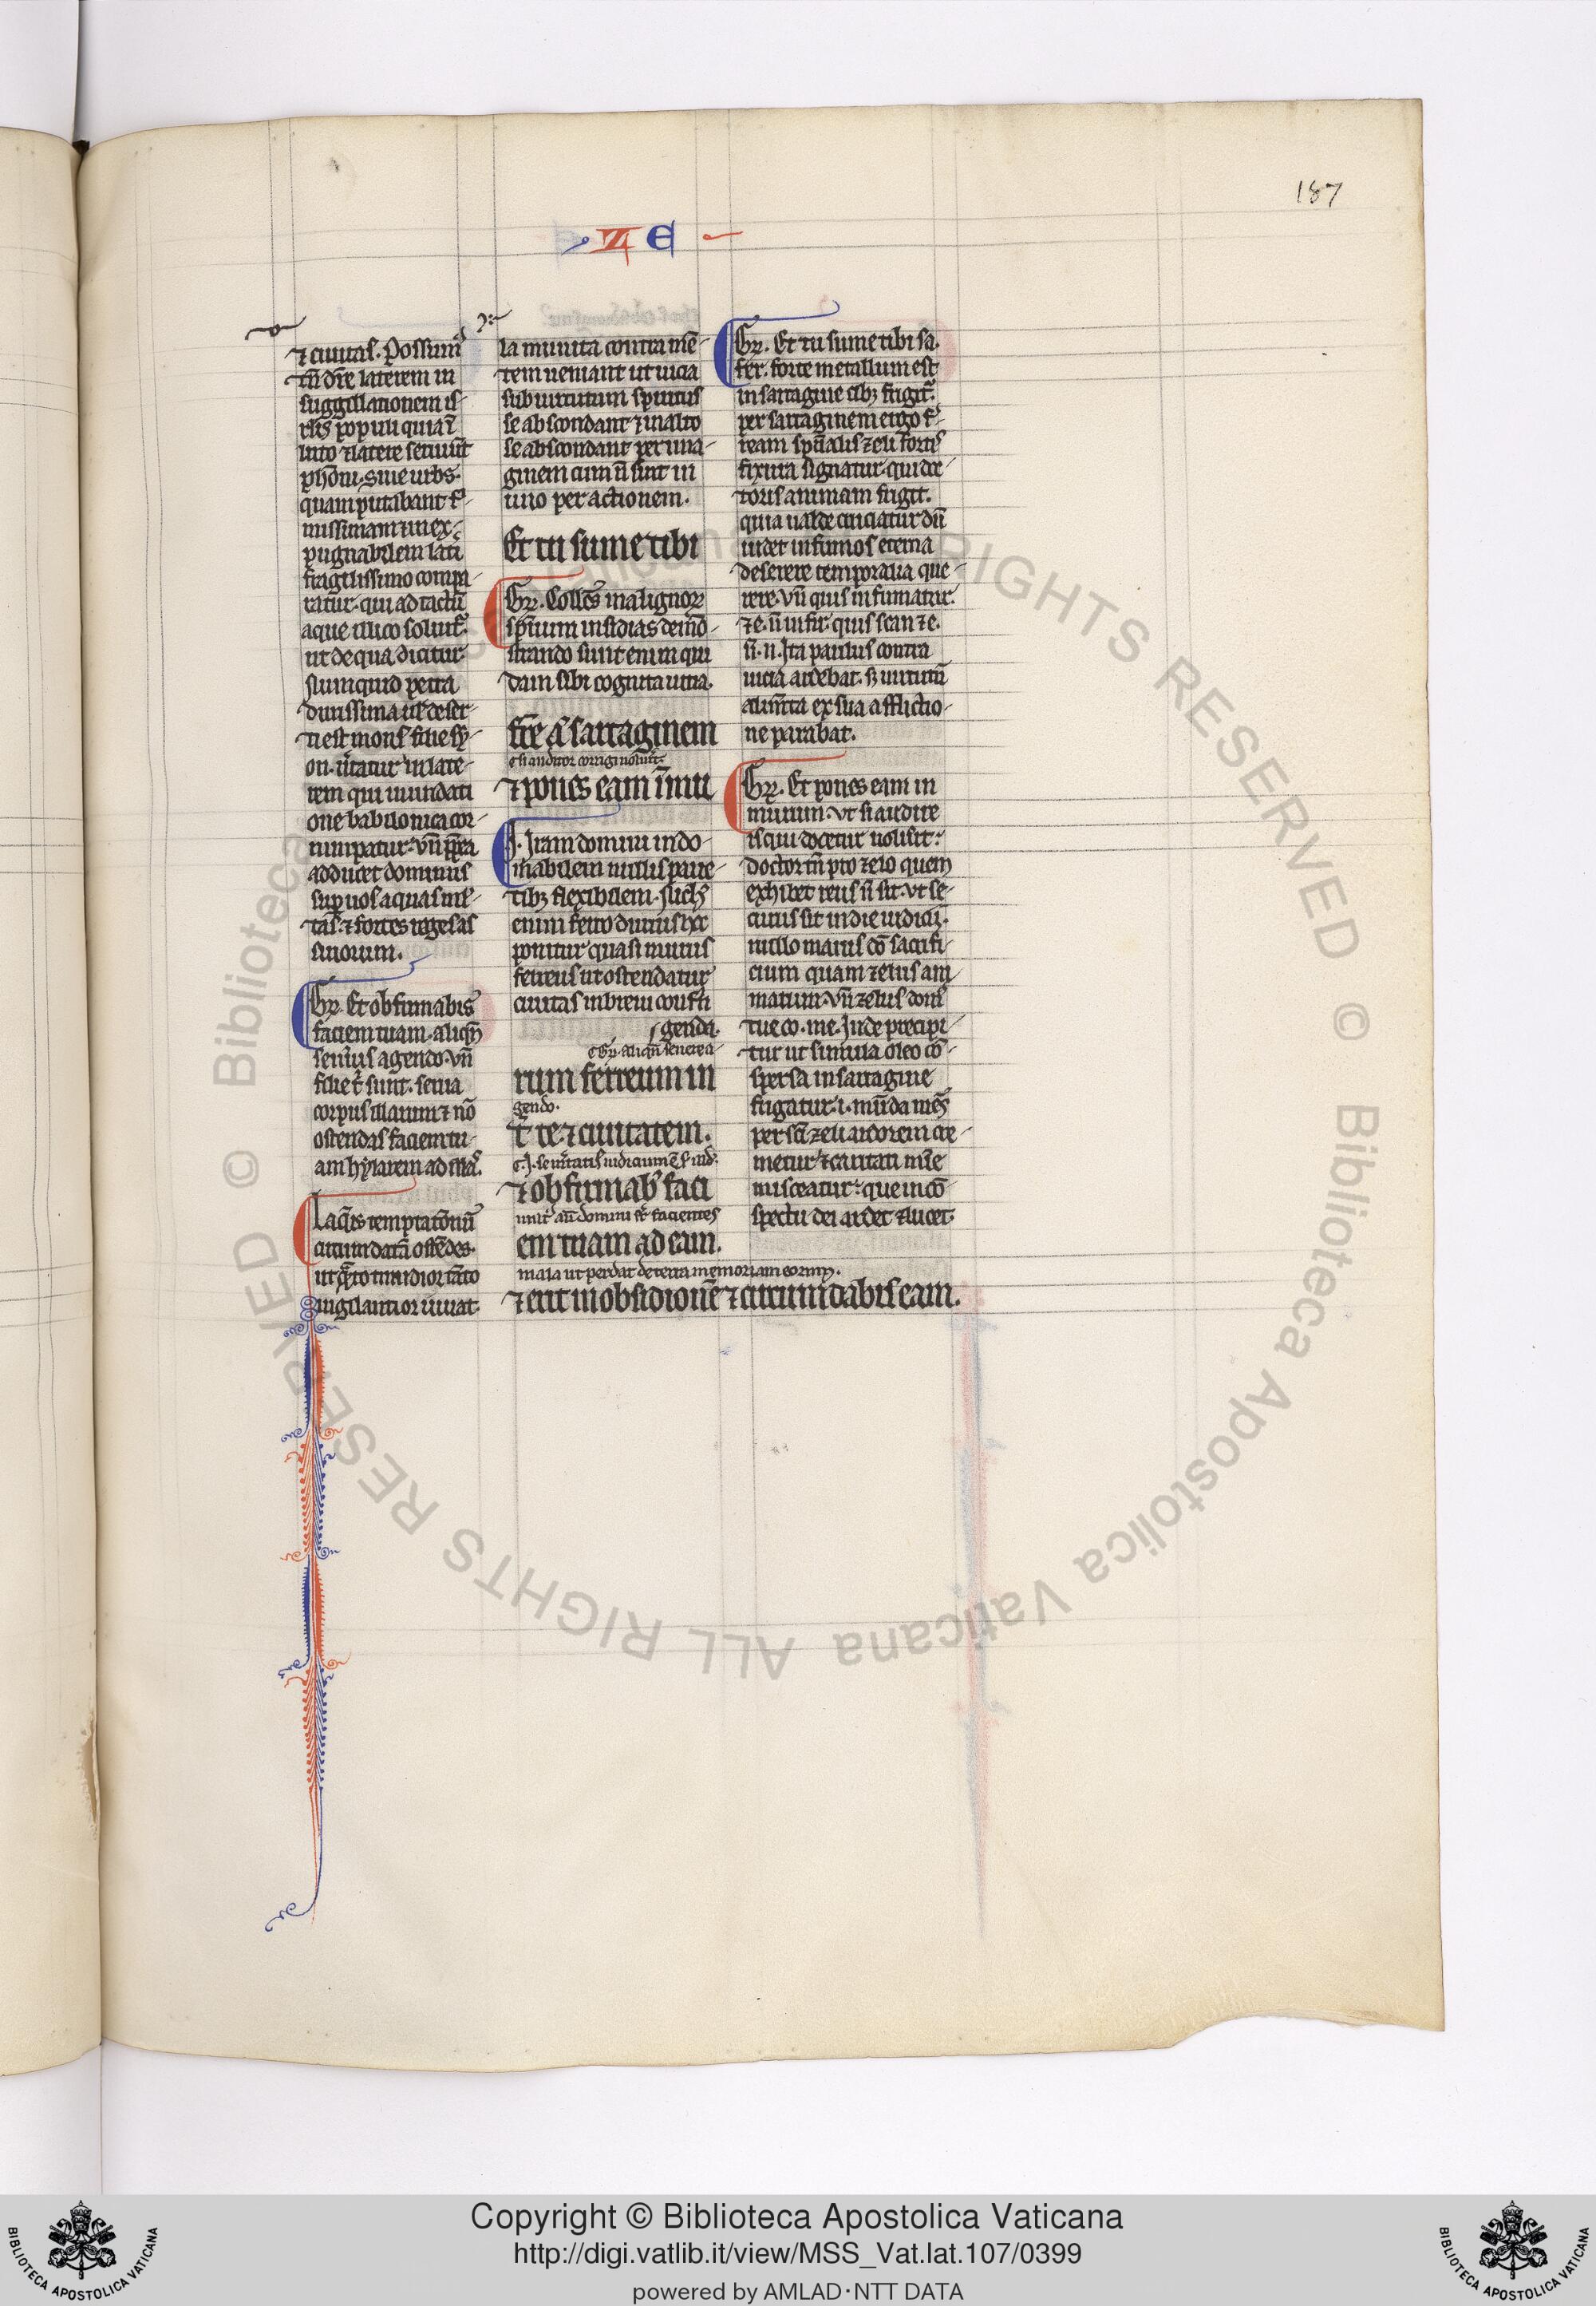 187
ZE
⁊ ciuitas. Possum᷒
tn̄ dr̄e laterem in
suggillationem is-
rl̄is populi quia ī
luto ⁊ latere seruiūt
pharōni. siue urbs.
quam putabant fir-
missimam ⁊ inex-
pugnabilem lat̄i
fragilissimo compa-
ratur. qui ad tactū
aque illico soluit᷑.
ut de qua dicitur.
Nunquid petra
durissima ul̄ deser-
ti est mons filie sy-
on. ūtatur in late-
rem qui inundati
one babilonica cor-
rumpatur. vn̄ ꝓpt̄ea
adducet dominus
sup uos aquas ml̄-
tas. ⁊ fortes reges as
siriorum.
Gr̄. Et obfirmabis
faciem tuam. aliqn̄
seueri᷒ agendo. vn̄
filie t̄ sunt. serua
corpus illarum ⁊ nō
ostendas faciem tu-
am hylarem ad illas.
Laq̄is temptatōnū
circumdatā ostēdes.
ut q̄nto timidior tāto
uigilantior uiuat.
la munita contra mē-
tem ueniant ut uicia
sub uirtutum spiritus
se abscondant ⁊ in alto
se abscondant per ima-
ginem cum n̄ sint in
uno per actionem.
Et tu sume tibi
Gr̄. Colles malignoꝝ
spirituum insidias demō-
strando sunt enim qui
dam sibi cognita uitia.
sartaginem
⁊ pones eam ī mu
I. Iram domini indo-
mabilem nullis pare-
tibꝫ flexibilem. Sicut
enim ferro durius
ponitur quasi murus
ferreus ut ostendatur
ciuitas in breui confri
genda.
Gr̄. aliqn̄ seuere a-
rum ferreum in
gendo.
t̄ te ⁊ ciuitatem.
⁊ obfirmab᷒ faci
em tuam ad eam.
mala ut perdat de terra memoriam eorum.
⁊ erit in obsidionē ⁊ circumdabis eam.
Gr̄. Et tu sume tibi sa.
fer. forte metallum est
in sartagine cibꝫ frigit᷑.
per sartaginem ergo fer-
ream spūalis zeli fortis
fixura signatur. qui doc-
toris animam frigit.
quia ualde cruciatur dū
uidet infirmos eterna
deserere temporalia que-
rere. Vn̄ quis infirmatur.
⁊ e. n̄ infir. quis scan ⁊ e.
n̄. u. Ita paulus contra
uicia ardebat. sꝫ uirtutū
alimēta ex sua afflictio-
ne parabat.
Gr̄. Et pones eam in
murum. vt si audire
is qui docetur noluit.
doctor tn̄ pro zelo quem
exhibet reus n̄ sit. vt se-
curus sit in die iudicii.
nullo maius dō sacrifi-
cium quam zelus ani
matum. vn̄ zelus dom᷒
tue co. me. Inde precipi-
tur ut simula oleo cō-
spersa in sartagine
frigatur. i. mūda mēs
per sc̄i zeli ardorem cre-
metur. ⁊ caritati mīe
misceatur. que in cō-
spectu dei ardet ⁊ lucet.
Copyright © Biblioteca Apostolica Vaticana
http://digi.vatlib.it/view/MSS_Vat.lat.107/0399
powered by AMLAD·NTT DATA
BIBLIOTECA APOSTOLICA VATICANA
BIBLIOTECA APOSTOLICA VATICANA
© Biblioteca Apostolica Vaticana ALL RIGHTS RESERVED